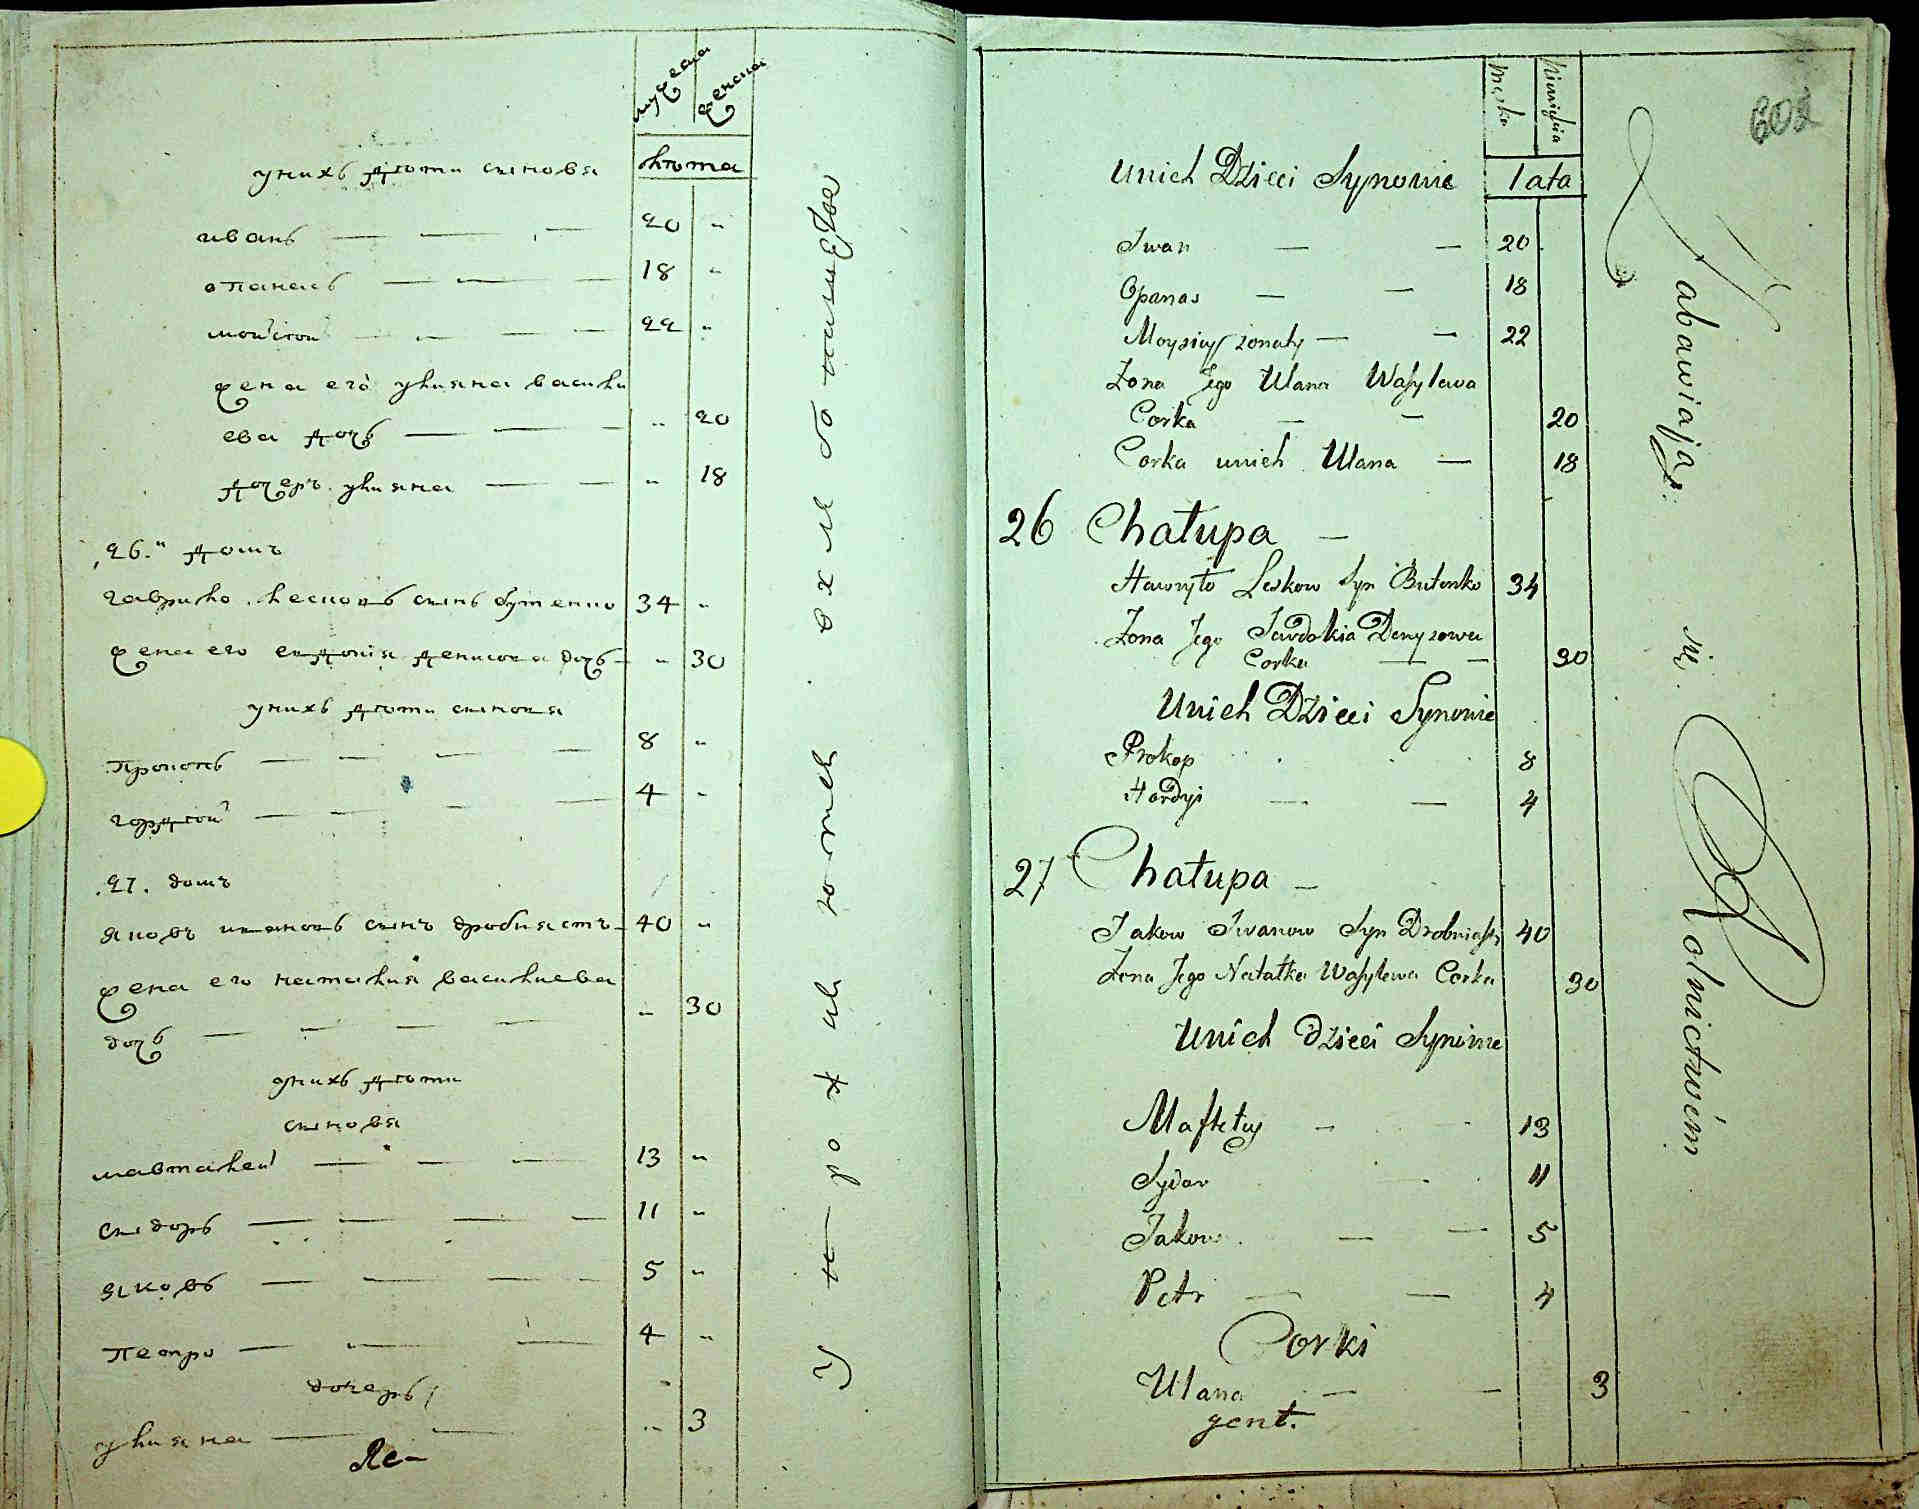 мужеска женска
унихъ дѣти синовя лѣта
иванъ 20 "
опанасъ 18 "
мойсей 22 "
жена его улияна васили
ева дочь " 20
дочеръ улияна " 18
26. домъ
гаврило лесковъ синъ бутенко 34 "
жена его евдокія денисова дочь " 30
унихъ дѣти синовя
прокопъ 8 "
гордѣй 4 "
27. домъ
яковъ ивановъ синъ дробнястъ 40 "
жена его наталия василиева
дочь " 30
унихъ дѣти
синовя
мавталей 13 "
сидоръ 11 "
яковъ 5 "
петро 4 "
дочеръ
улияна " 3
Упражняются хлебопашествомъ
602
Męska Kiewigkia
Unich Dzieci Synowie lata
Iwan — — 20
Opanas — — 18
Moysiey żonaty — — 22
Zona Jego Ulana Wasylewa
Corka — — 20
Corka unich Ulana — 18
26 Chałupa —
Hawryło Leskow Syn Butenko 34
Zona Jego Jewdokia Denysowa
Corka — — 30
Unich Dzieci Synowie
Prokop 8
Hordyi — — 4
27 Chałupa —
Jakow Iwanow Syn Drobniasty 40
Zona Jego Natałka Wasylewa Corka 30
Unich dzieci Synowie
Maftey — - 13
Sydor 11
Jakow — — 5
Petr — — 4
Corki
Ulana — — 3
gent.
Zabawiają się Rolnictwem